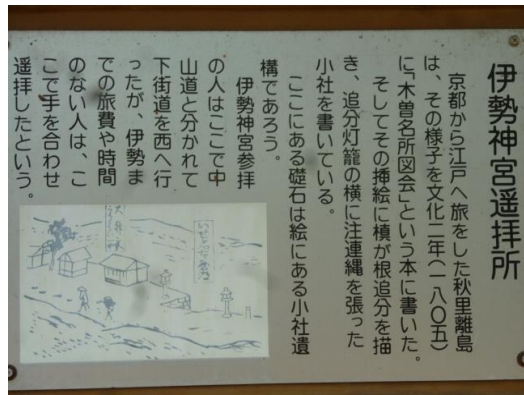 伊勢神宮遥拝所
京都から江戸へ旅をした秋里離島
は、その様子を文化二年(一八〇五)
に「木曽名所図会」という本に書いた。
そしてその挿絵に槙が根追分を描
き、追分灯籠の横に注連縄を張った
小社を書いている。
ここにある礎石は絵にある小社遺
構であろう。
伊勢神宮参拝
の人はここで中
山道と分かれて
下街道を西へ行
ったが、伊勢ま
での旅費や時間
のない人は、こ
こで手を合わせ
遥拝したという。